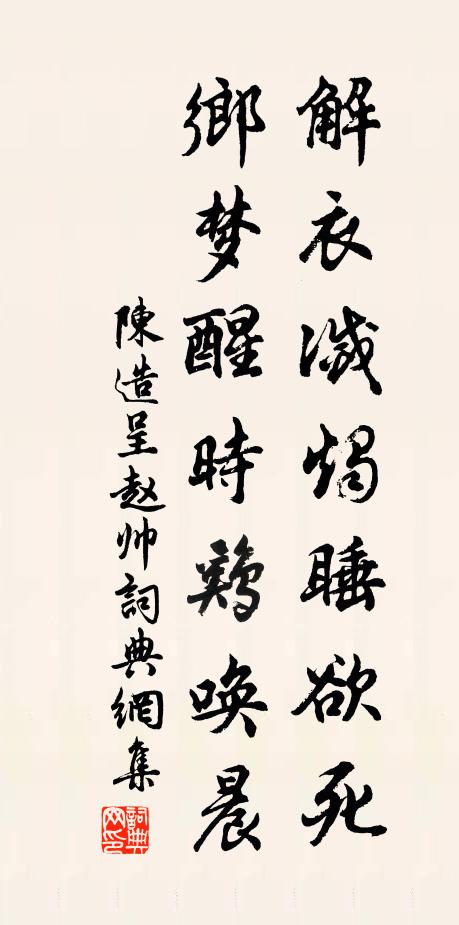 解衣滅燭睡欲死
鄉梦醒時鷄唤晨
陳造呈赵帅詞典網集
詞典网印